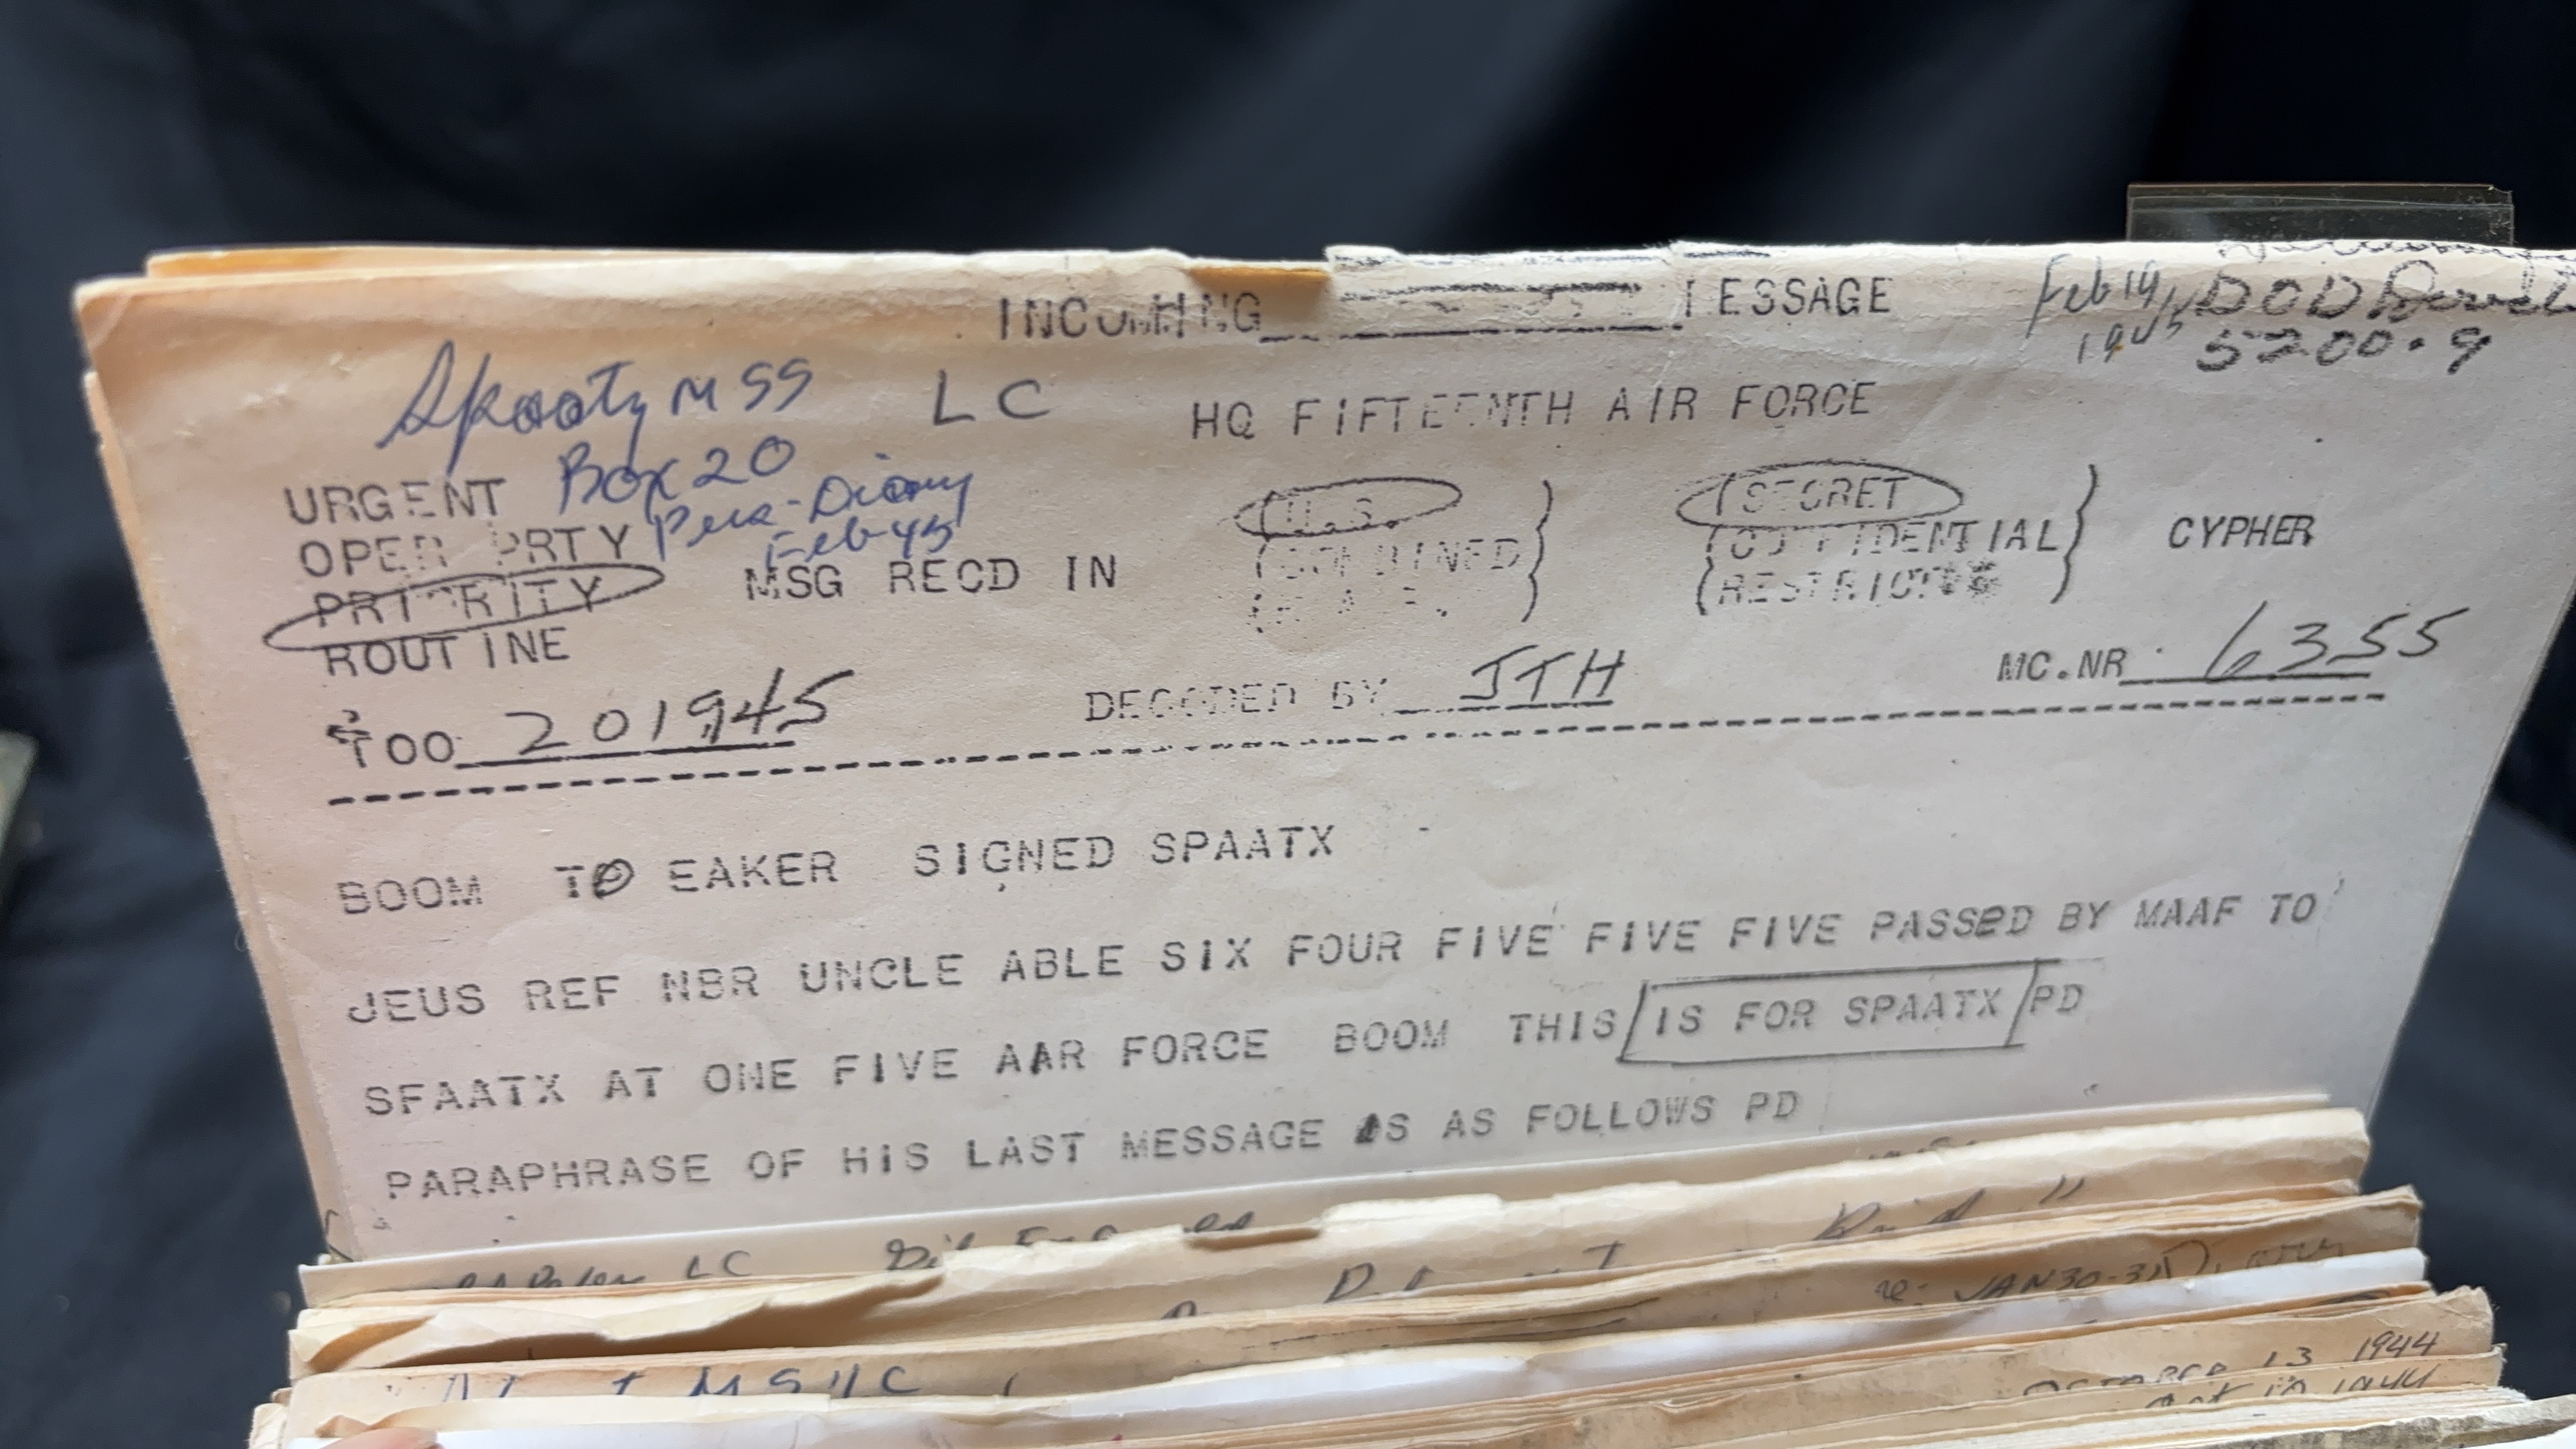 INCOMING MESSAGE
Feb 19, 1945
DOD
5200.9
Spaatz MSS LC
Box 20
Pers-Diary
Feb 45
HQ FIFTEENTH AIR FORCE
URGENT
OPER PRTY
PRIORITY
ROUTINE
MSG RECD IN
(U.S.
(COMBINED
(SECRET
(CONFIDENTIAL
(RESTRICTED
CYPHER
TOO 201945
DECODED BY JTH
MC.NR. 6355
BOOM TO EAKER SIGNED SPAATX
JEUS REF NBR UNCLE ABLE SIX FOUR FIVE FIVE FIVE PASSED BY MAAF TO
SFAATX AT ONE FIVE AAR FORCE BOOM THIS /IS FOR SPAATX/ PD
PARAPHRASE OF HIS LAST MESSAGE AS AS FOLLOWS PD
LC
re: JAN 30-31
MS LC
OCTOBER 13 1944
Oct 1944